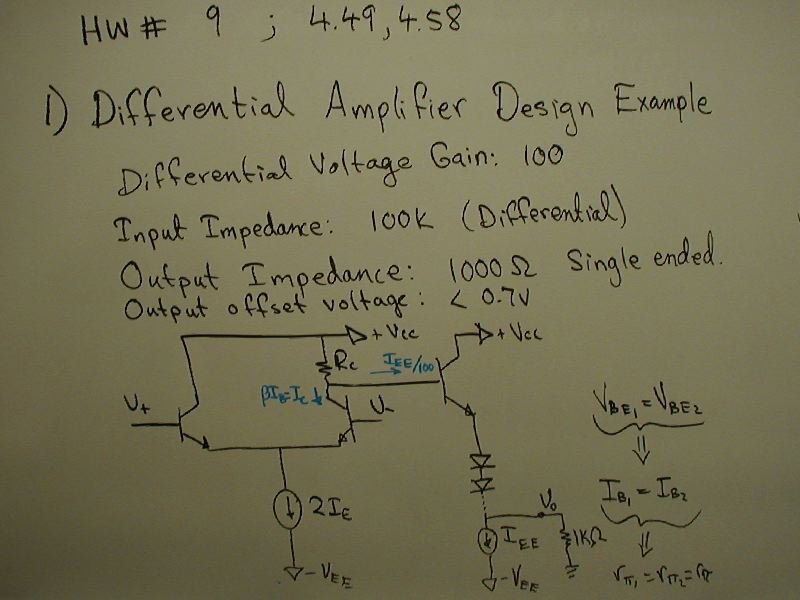 HW # 9 ; 4.49, 4.58
1) Differential Amplifier Design Example
Differential Voltage Gain: 100
Input Impedance: 100K (Differential)
Output Impedance: 1000 Ω Single ended.
Output offset voltage: < 0.7V
+Vcc
+Vcc
Rc
IEE/100
βIB=Ic
U+
U-
VBE1 = VBE2
⇓
IB1 = IB2
⇓
rπ1 = rπ2 = rπ
2IE
Vo
IEE
1KΩ
-VEE
-VEE